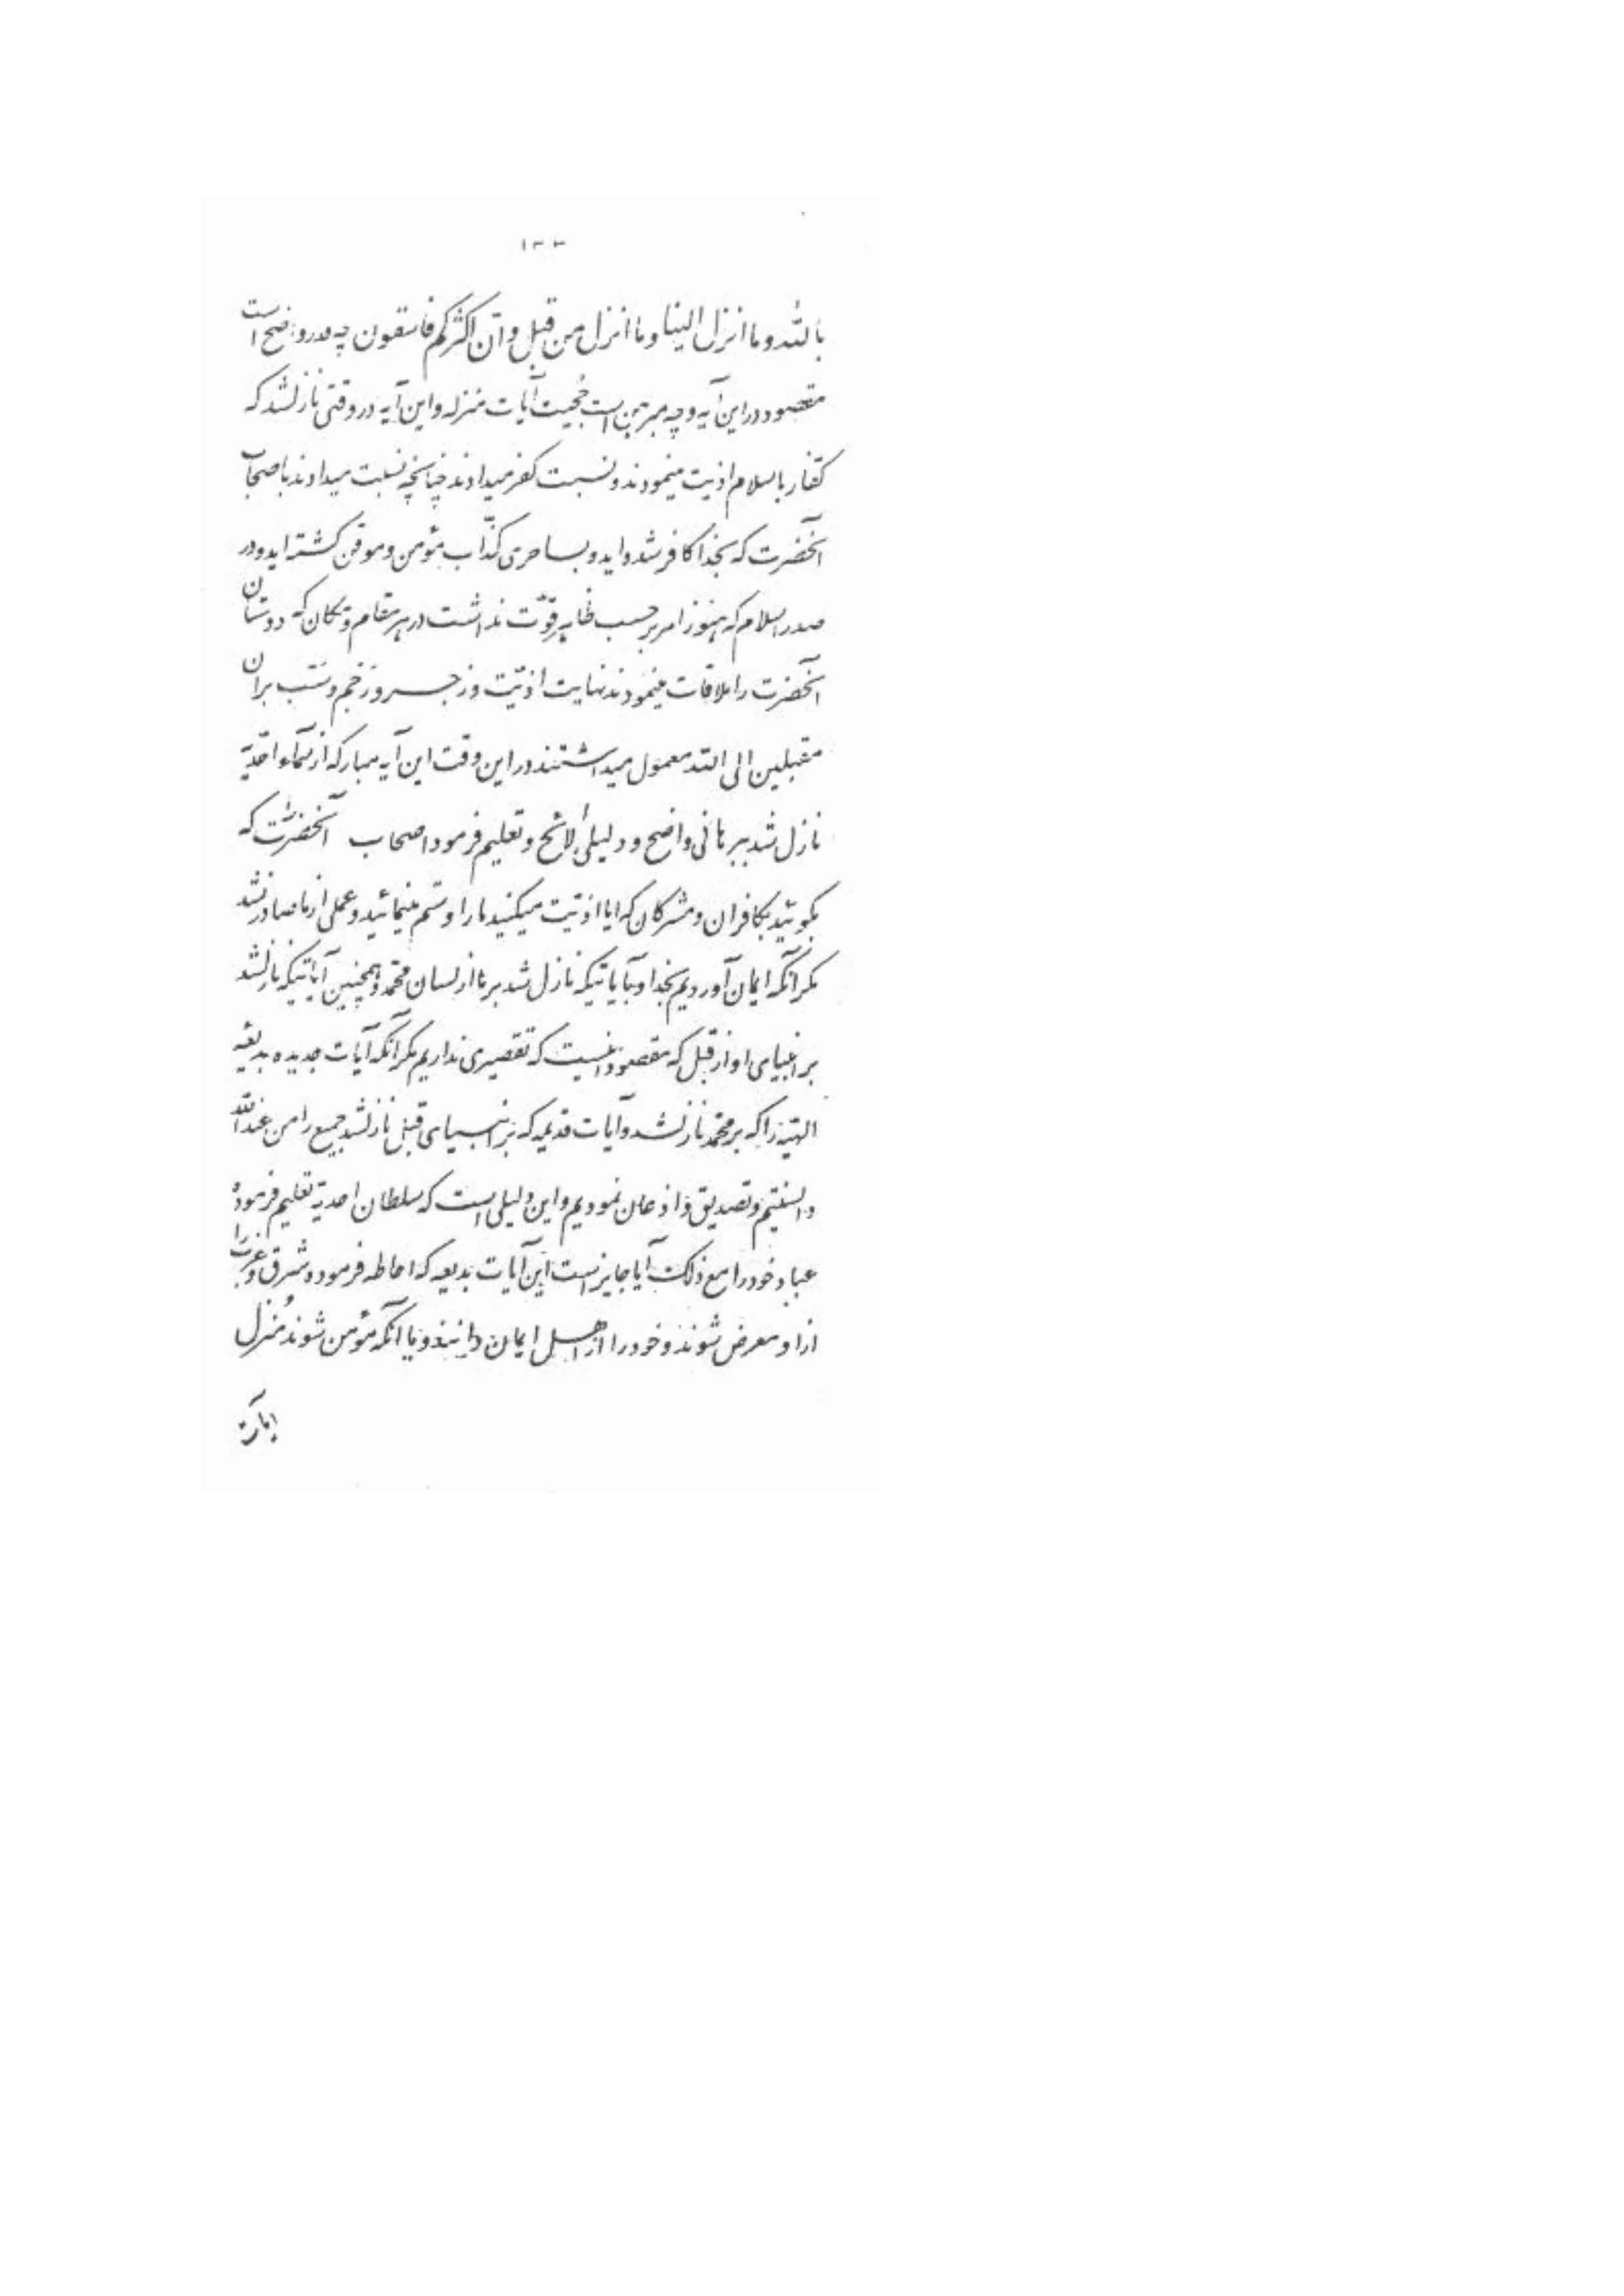 ۱۳۳
بالله و ما انزل الینا و ما انزل من قبل و انّ اکثرکم فاسقون چه قدر واضح است
مقصود در این آیه و چه مبرهن است حجیّت آیات منزله و این آیه در وقتی نازلشد که
کفّار باسلام اذیت مینمودند و نسبت کفر میدادند چنانچه نسبت میدادند باصحاب
آنحضرت که بخدا کافر شده‌اید و بساحری کذّاب مؤمن و موقن گشته‌اید و در
صدر اسلام که هنوز امر بر حسب ظاهر قوّت نداشت در هر مقام و مکان که دوستان
آنحضرت را ملاقات مینمودند نهایت اذیّت و زجر و زخم و سَبّ بر آن
مقبلین الی الله معمول میداشتند در این وقت این آیه مبارکه از سمآء احدیّه
نازل شد ببرهانی واضح و دلیلی لائح و تعلیم فرمود اصحاب آنحضرت را که
بگوئید بکافران و مشرکان که ایا اذیّت میکنید ما را و ستم مینمائید و عملی از ما صادر نشد
مگر آنکه ایمان آوردیم بخدا و بآیاتیکه نازل شد بر ما از لسان محمّد و همچنین آیاتیکه نازلشد
بر انبیای او از قبل که مقصود اینست که تقصیری نداریم مگر آنکه آیات جدیده بدیعه
الهیّه را که بر محمّد نازلشد و آیات قدیمه که بر انبیای قبل نازلشد جمیع را من عند الله
دانستیم و تصدیق و اذعان نمودیم و این دلیلی است که سلطان احدیّه تعلیم فرموده
عباد خود را مع ذلک آیا جایز است این آیات بدیعه که احاطه فرموده شرق و غرب را
از او معرض شوند و خود را از اهل ایمان دانند و یا آنکه مؤمن شوند بمُنزل